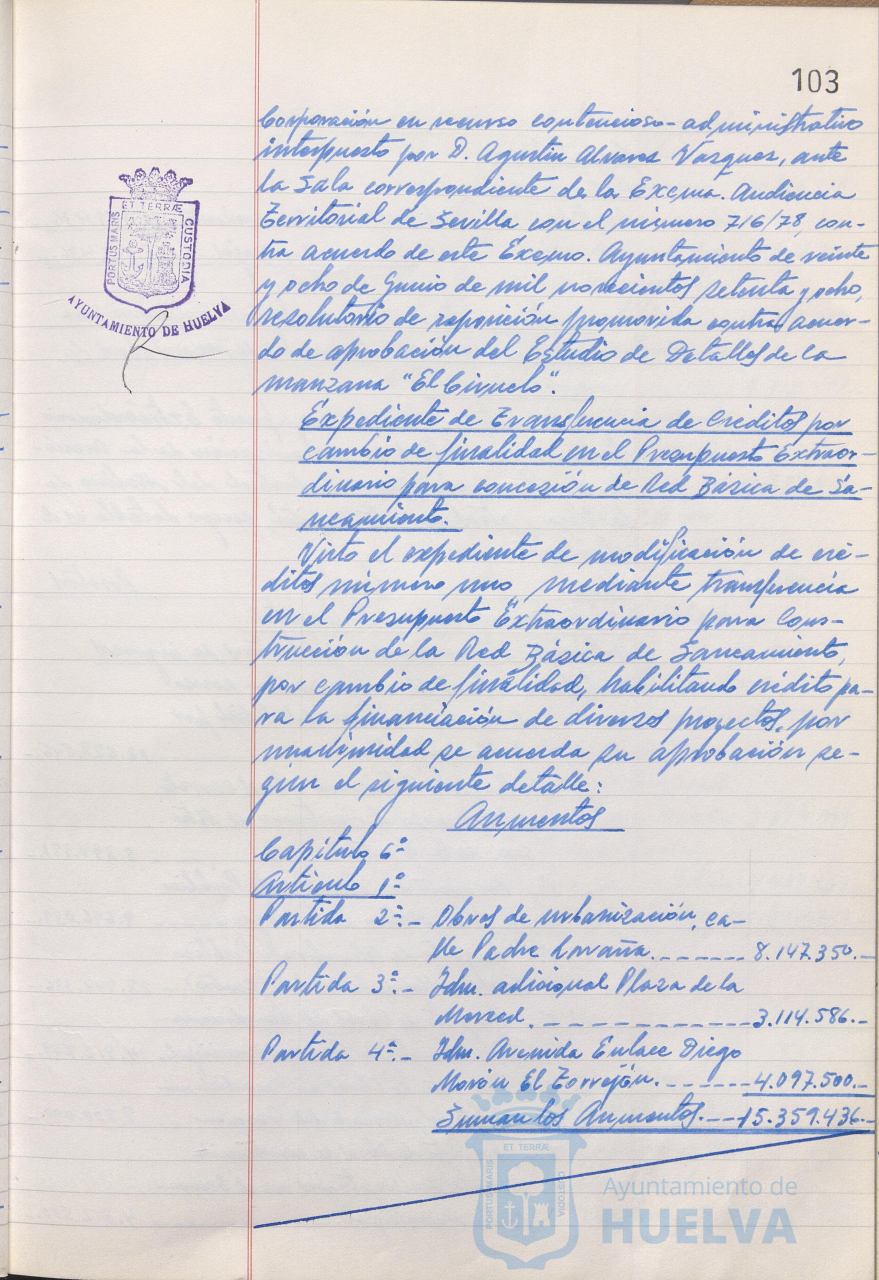 103
Corporación en recurso contencioso-administrativo
interpuesto por D. Agustín Alvarez Vazquez, ante
la Sala correspondiente de la Excma. Audiencia
Territorial de Sevilla con el número 716/78, con-
tra acuerdo de este Excmo. Ayuntamiento de veinte
y ocho de Junio de mil novecientos setenta y ocho,
resolutorio de reposición promovida contra acuer-
do de aprobación del Estudio de Detalles de la
manzana "El Ciruelo".
Expediente de Transferencia de Créditos por
cambio de finalidad en el Presupuesto Extraor-
dinario para concesión de Red Básica de Sa-
neamiento.
Visto el expediente de modificación de cré-
ditos número uno, mediante transferencia
en el Presupuesto Extraordinario para Cons-
trucción de la Red Básica de Saneamiento,
por cambio de finalidad, habilitando crédito pa-
ra la financiación de diversos proyectos, por
unanimidad se acuerda su aprobación se-
gún el siguiente detalle:
Aumentos
Capítulo 6º
Artículo 1º
Partida 2ª.- Obras de urbanización, ca-
lle Padre Laraña. 8.147.350.-
Partida 3ª.- Idm. adicional Plaza de la
Merced. 3.114.586.-
Partida 4ª.- Idm. Avenida Enlace Diego
Morón El Torrejón. 4.097.500.-
Suman los Aumentos. 15.359.436.-
ET TERRÆ
PORTUS MARIS
CUSTODIA
AYUNTAMIENTO DE HUELVA
ET TERRÆ
PORTUS MARIS
CUSTODIA
Ayuntamiento de
HUELVA